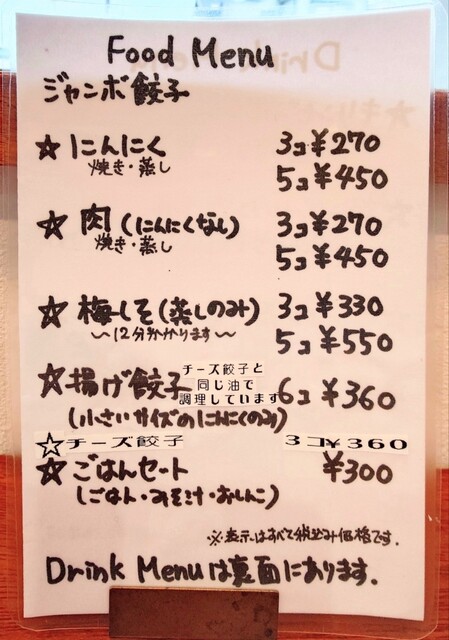 Food Menu
ジャンボ餃子
☆ にんにく 3コ ¥270
焼き・蒸し
5コ ¥450
☆ 肉 (にんにくなし) 3コ ¥270
焼き・蒸し
5コ ¥450
☆ 梅しそ (蒸しのみ) 3コ ¥330
〜12分かかります〜
5コ ¥550
☆ 揚げ餃子 6コ ¥360
チーズ餃子と
同じ油で
調理しています
(小さいサイズのにんにくのみ)
☆チーズ餃子 3コ¥360
☆ ごはんセート ¥300
(ごはん・みそ汁・おしんこ)
※表示はすべて税込み価格です.
Drink Menuは裏面にあります.